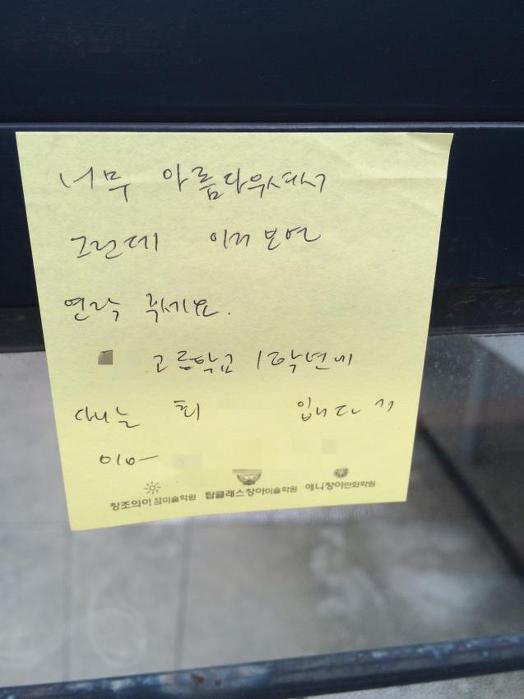 너무 아름다우셔서
그런데 이거 보면
연락 주세요.
고등학교 1학년에
입니다
창조의아침미술학원 탑클래스창아미술학원 애니창아만화학원